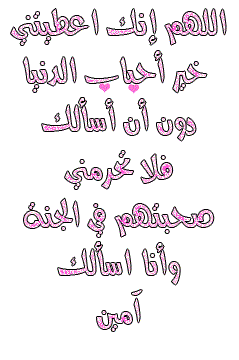 اللهم إنك اعطيتني
خير أحباب الدنيا
دون أن أسألك
فلا تحرمني
صحبتهم في الجنة
وأنا اسألك
آمين